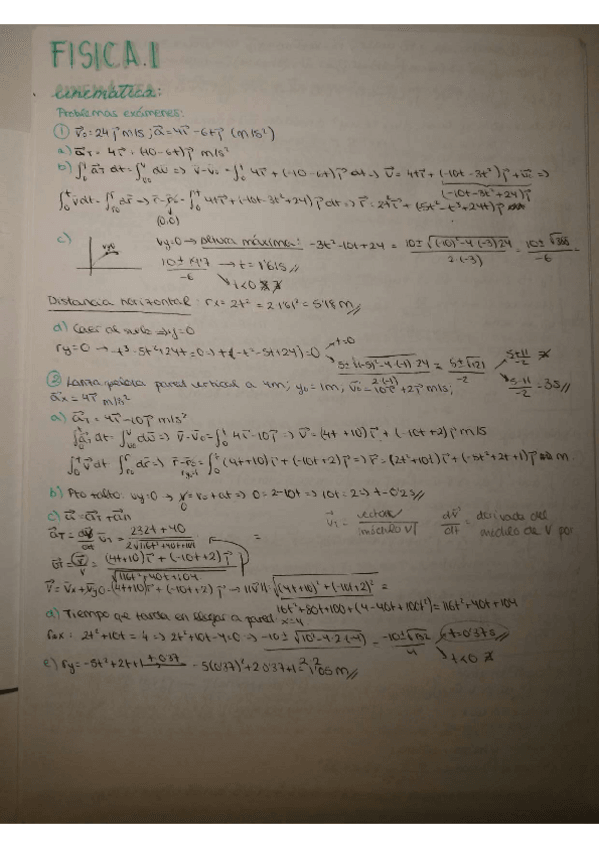 FISICA.I
cinemática:
Problemas exámenes:
① v⃗₀=24 j⃗ m/s ; a⃗=4i⃗ -6t j⃗ (m/s²)
a) a⃗ᴛ = 4i⃗ + (-10-6t) j⃗ m/s²
b) ∫₀ᵗ a⃗ᴛ dt = ∫ᵥ₀ᵛ dv⃗ => v⃗-v⃗₀ = ∫₀ᵗ 4i⃗ + (-10-6t) j⃗ dt => v⃗ = 4t i⃗ + (-10t-3t²) j⃗ + =>
(-10t-3t²+24) j⃗
∫₀ᵗ v⃗ dt = ∫ᵣ₀ʳ dr⃗ => r⃗-r⃗₀ = ∫₀ᵗ 4t i⃗ + (-10t-3t²+24) j⃗ dt => r⃗ = 2t² i⃗ + (-5t²-t³+24t) j⃗
(0,0)
c) vy=0 → altura máxima: -3t²-10t+24 = 10±√(-10)²-4·(-3)24 / 2·(-3) = 10±√388 / -6 =
10±19'7 / -6 → t=1'61s //
t<0
Distancia horizontal: rx = 2t² = 2·1'61² = 5'18 m //
d) Caer al suelo => y=0
ry=0 → -t³-5t²+24t=0 => t(-t²-5t+24)=0 t=0
5±√(-5)²-4·(-1)·24 / 2·(-1) = 5±√121 / -2 5+11 / -2
5-11 / -2 = 3s //
② Lanza pelota pared vertical a 4m; y₀=1m; v⃗₀=10i⃗+2j⃗ m/s;
a⃗x = 4i⃗ m/s²
a) a⃗ᴛ = 4i⃗-10j⃗ m/s²
∫₀ᵗ a⃗ᴛ dt = ∫ᵥ₀ᵛ dv⃗ => v⃗-v⃗₀ = ∫₀ᵗ 4i⃗-10j⃗ => v⃗ = (4t+10) i⃗ + (-10t+2) j⃗ m/s
∫₀ᵗ v⃗ dt = ∫ᵣ₀ʳ dr⃗ => r⃗-r⃗₀ = ∫₀ᵗ (4t+10) i⃗ + (-10t+2) j⃗ => r⃗ = (2t²+10t) i⃗ + (-5t²+2t+1) j⃗ m
b) Pto + alto: vy=0 → v = v₀+at => 0=2-10t => 10t=2 => t=0'2s //
c) a⃗ = a⃗ᴛ + a⃗n
v⃗₁ = vector / módulo V
dv⃗/dt = derivada del módulo de V por
a⃗ᴛ = dv/dt v⃗₁ = 232t+40 / 2√116t²+40t+104 =
u⃗ᴛ = v⃗/v = (4t+10) i⃗ + (-10t+2) j⃗ / √116t²+40t+104
v⃗ = v⃗x+v⃗y = (4t+10) i⃗ + (-10t+2) j⃗ → ||v⃗||: √(4t+10)²+(-10t+2)² =
16t²+80t+100+(4-40t+100t²) = 116t²+40t+104
d) Tiempo que tarda en llegar a pared x=4
rox: 2t²+10t=4 => 2t²+10t-4=0 => -10±√10²-4·2·(-4) = -10±√132 / 4 t=0'37s //
t<0
e) ry = -5t²+2t+1 t=0'37 → -5(0'37)²+2·0'37+1 = 1'05 m //